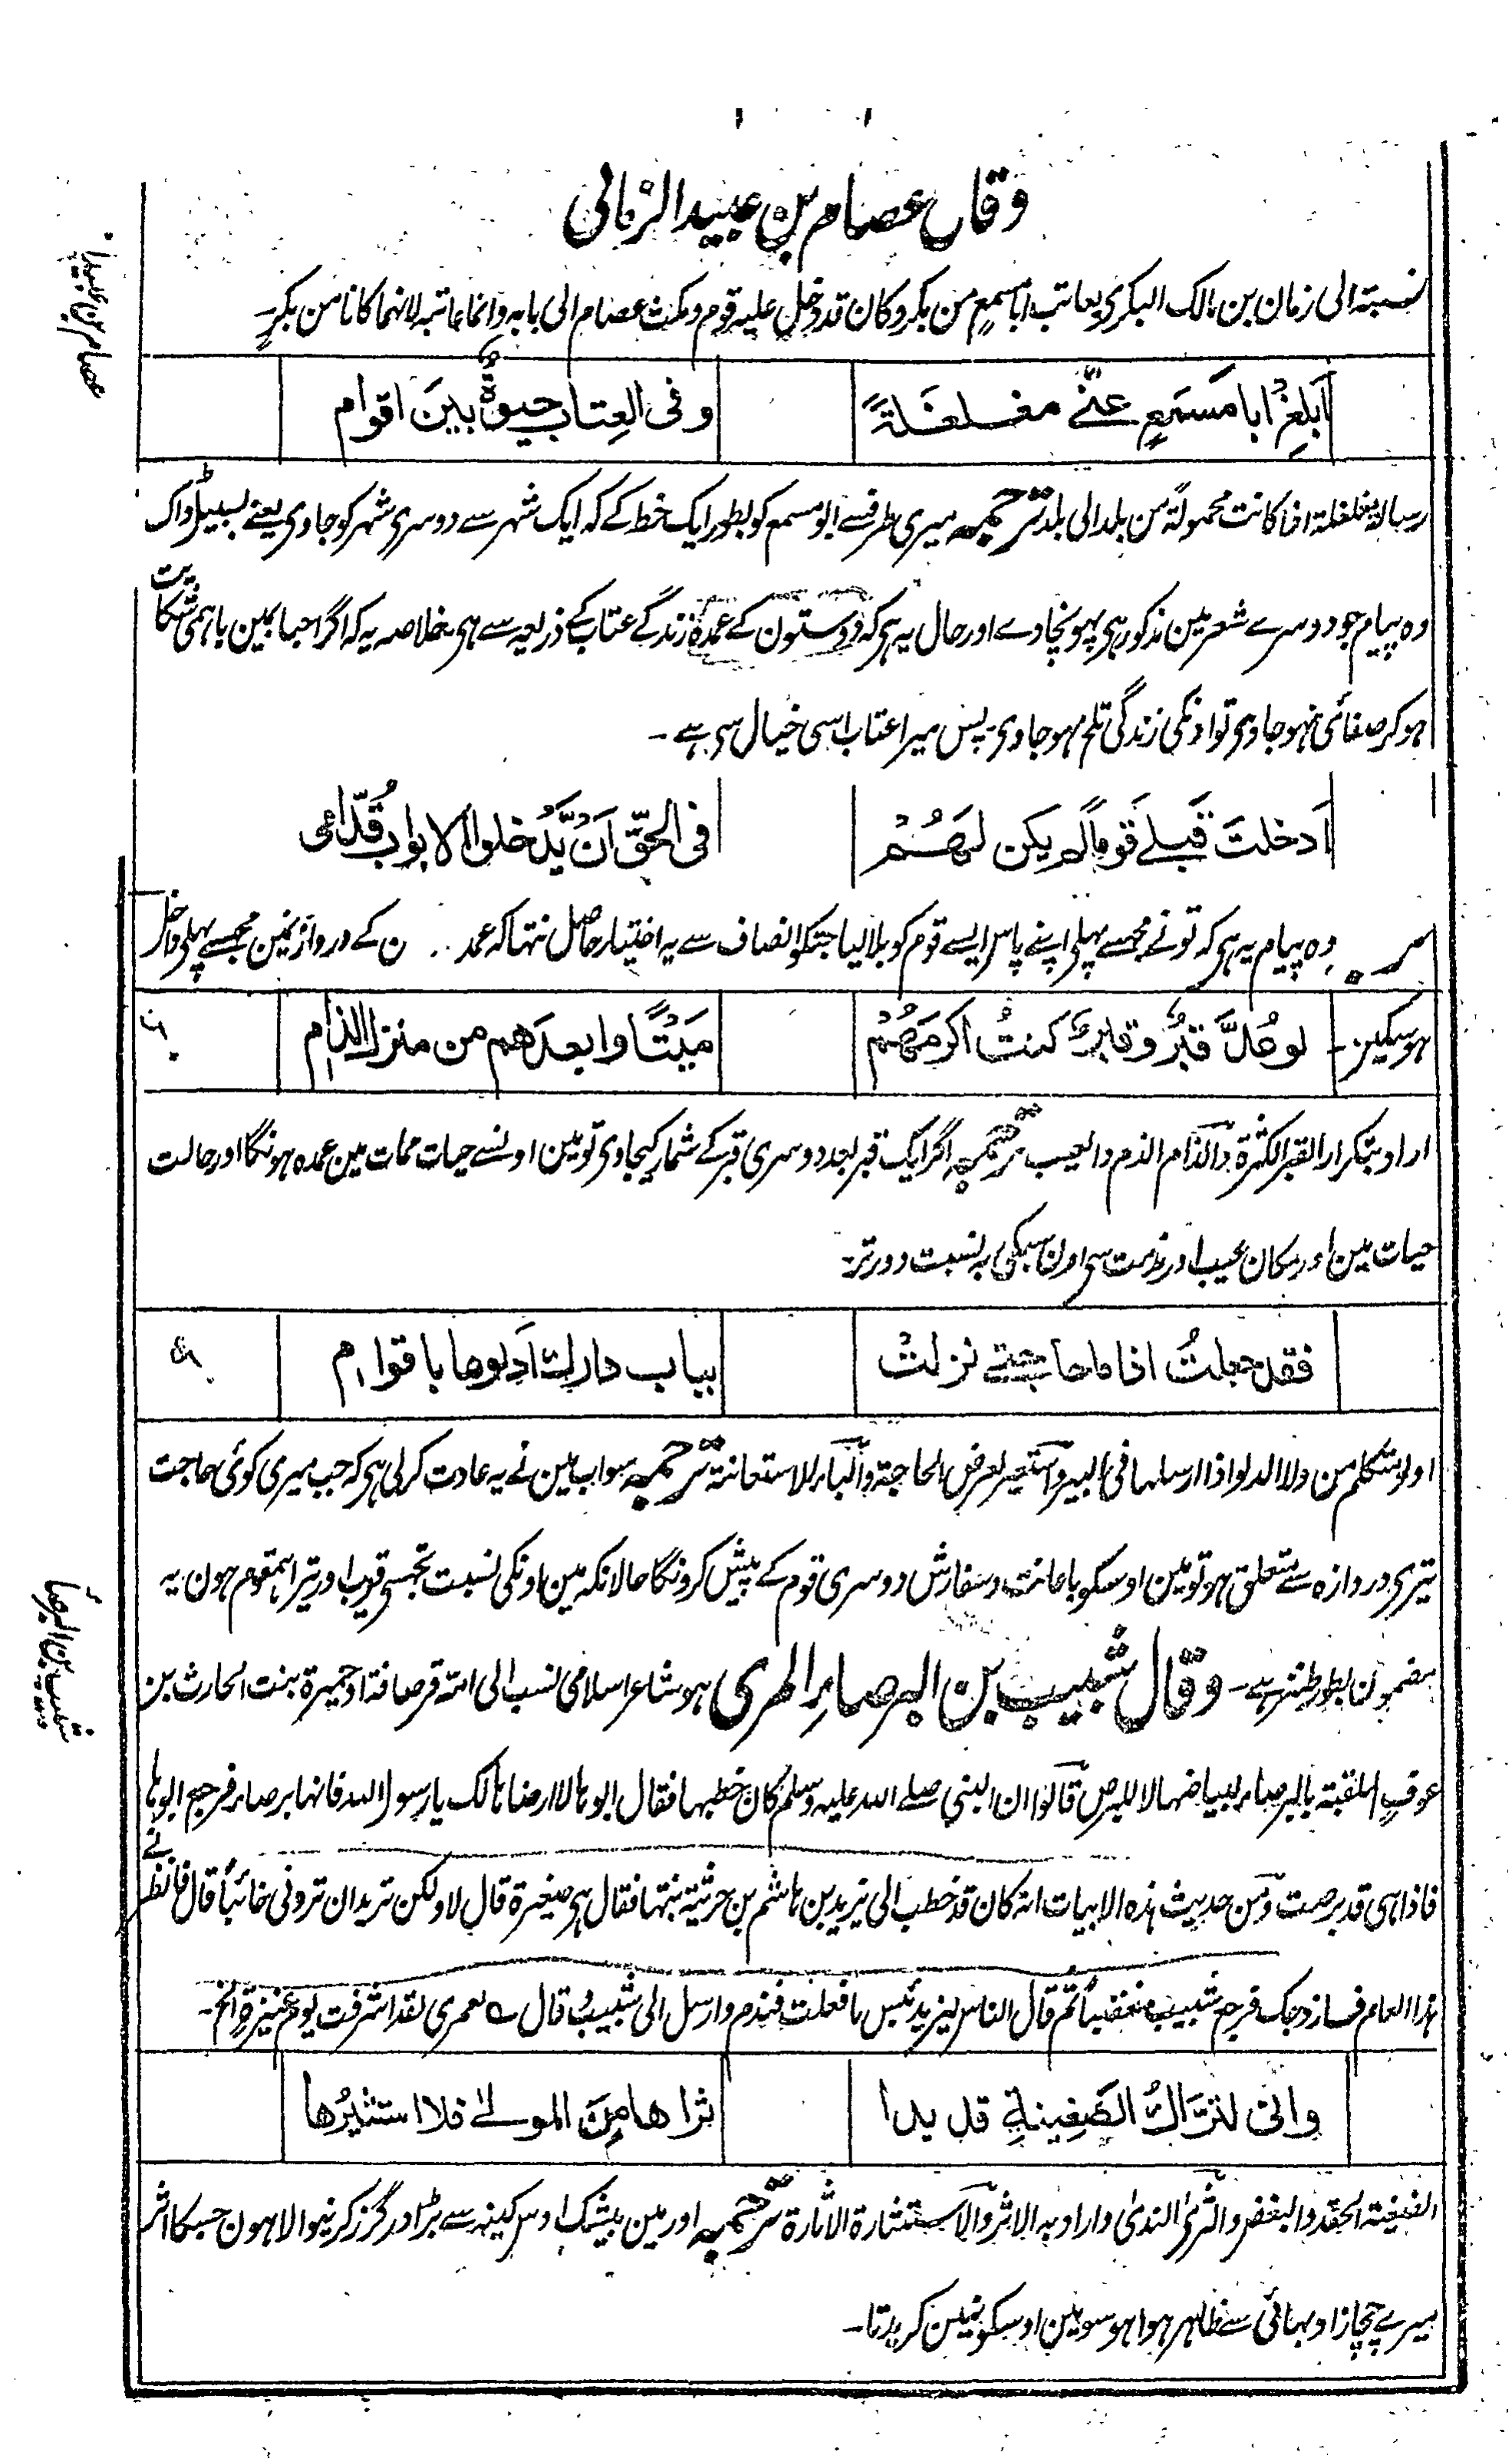 وقال عصام بن عبید الزمانی
نسبتہ الی زمان بن مالک البکری یعاتب ابا مسمع من بکر وکان قد دخل علیہ قوم ومکث عصام الی بابہ وانما عاتبہ لانہما کانا من بکر۔
عصام بن عبید
اَبلِغْ ابا مَسمَعٍ عنّے مغلغلَةً
وفی العِتاب حیوةٌ بینَ اقوام
رسالۃ مغلغلۃ اذا کانت محمولۃ من بلد الی بلد ترجمہ میری طرفسے ابو مسمع کو بطور ایک خط کے کہ ایک شہر سے دوسری شہر کو جاوی یعنے بسبیل ڈاک
وہ پیام جو دوسرے شعر مین مذکور ہی پہونچا دے اور حال یہ ہی کہ دوستون کے عمدہ زندگے عتاب کے ذریعہ سے ہی خلاصہ یہ کہ اگر احباب مین باہمی شکایت
ہو کر صفائی نہو جاوی تو اونکی زندگی تلخ ہو جاوی۔ پس میرا عتاب اسی خیال سی ہے ۔
اَدخلتَ قَبلے قَوماً لم یکن لھَُمْ
فی الحقّ اَنْ یَّدخلوا الابوابَ قُدّامی
وہ پیام یہ ہی کہ تو نے مجھسے پہلی اپنے پاس ایسے قوم کو بلا لیا جنکو انصاف سے یہ اختیار حاصل نتھا کہ عمد ن کے دروازہ نمین مجھسے پہلی داخل
ہو سکین ۔
لو عُدَّ قبرٌ وقبرٌ کنتُ اکرمَھُمْ
مَیْتًا وابعدَھم من منزل الذامِ
اراد بتکرار القبر الکثرۃ والذام الذم والعیب ترجمہ اگر ایک قبر بعد دوسری قبر کے شمار کیجاوی تو مین اونسے حیات ممات مین عمدہ ہونگا اور حالت
حیات مین اور مکان عیب اور مذمت سی اون سبکی بہ نسبت دور تر۔
فقد جعلتُ اذا ما حاجتے نزلتْ
بباب دارك اَدلوھا باقوام
ادلو متکلم من دلا الدلو اذا ارسلہا فی البیر واستعیر لعرض الحاجۃ والباء للاستعانۃ ترجمہ سو اب مین نے یہ عادت کر لی ہی کہ جب میری کوئی حاجت
تیری دروازہ سے متعلق ہو تو مین اوسکو باعانت وسفارش دوسری قوم کے پیش کرونگا حالانکہ مین اونکی نسبت تجھسی قریب اور تیرا ہمقوم ہون یہ
مضمون بطور طنز ہے ۔ وقال شبیب بن البرصاء المری ہو شاعر اسلامی نسب الی امہ قرصافۃ او جمیرۃ بنت الحارث بن
شبیب بن البرصاء
عوف الملقبۃ بالبرصاء لبیاضہا لا للبرص قالوا ان النبی صلے اللہ علیہ وسلم کان خطبہا فقال ابوہا لا ارضاہا لک یا رسول اللہ فانہا برصاء فرجع ابوہا
فاذا ہی قد برصت ومن حدیث ہذہ الابیات انہ کان قد خطب الی یزید بن ہاشم بن حرثیۃ بنتہا فقال ہی صغیرۃ قال لا ولکن ترید ان تردنی خائباً قال فانظرنی
ہذا العام فسازوجک فرحم شبیب مغضباً ثم قال الناس لیزید بئس ما فعلت فندم وارسل الی شبیب وقال ے لعمری لقد اشرفت یوم عنیزۃ الخ ۔
وانی لترّاكُ الضَغِینةِ قد بدا
ثراھا مِنَ المولے فلا استثیرُھا
الضغینۃ الحقد والبغض والثری الندی واراد بہ الاثر والاستثارۃ الاثارۃ ترجمہ اور مین بیشک اوس کینہ سے بڑا درگزر کرنیوالا ہون جسکا اثر
میرے چچازاد بھائی سے ظاہر ہوا ہو سو مین اوسکو نہین کریدتا ۔